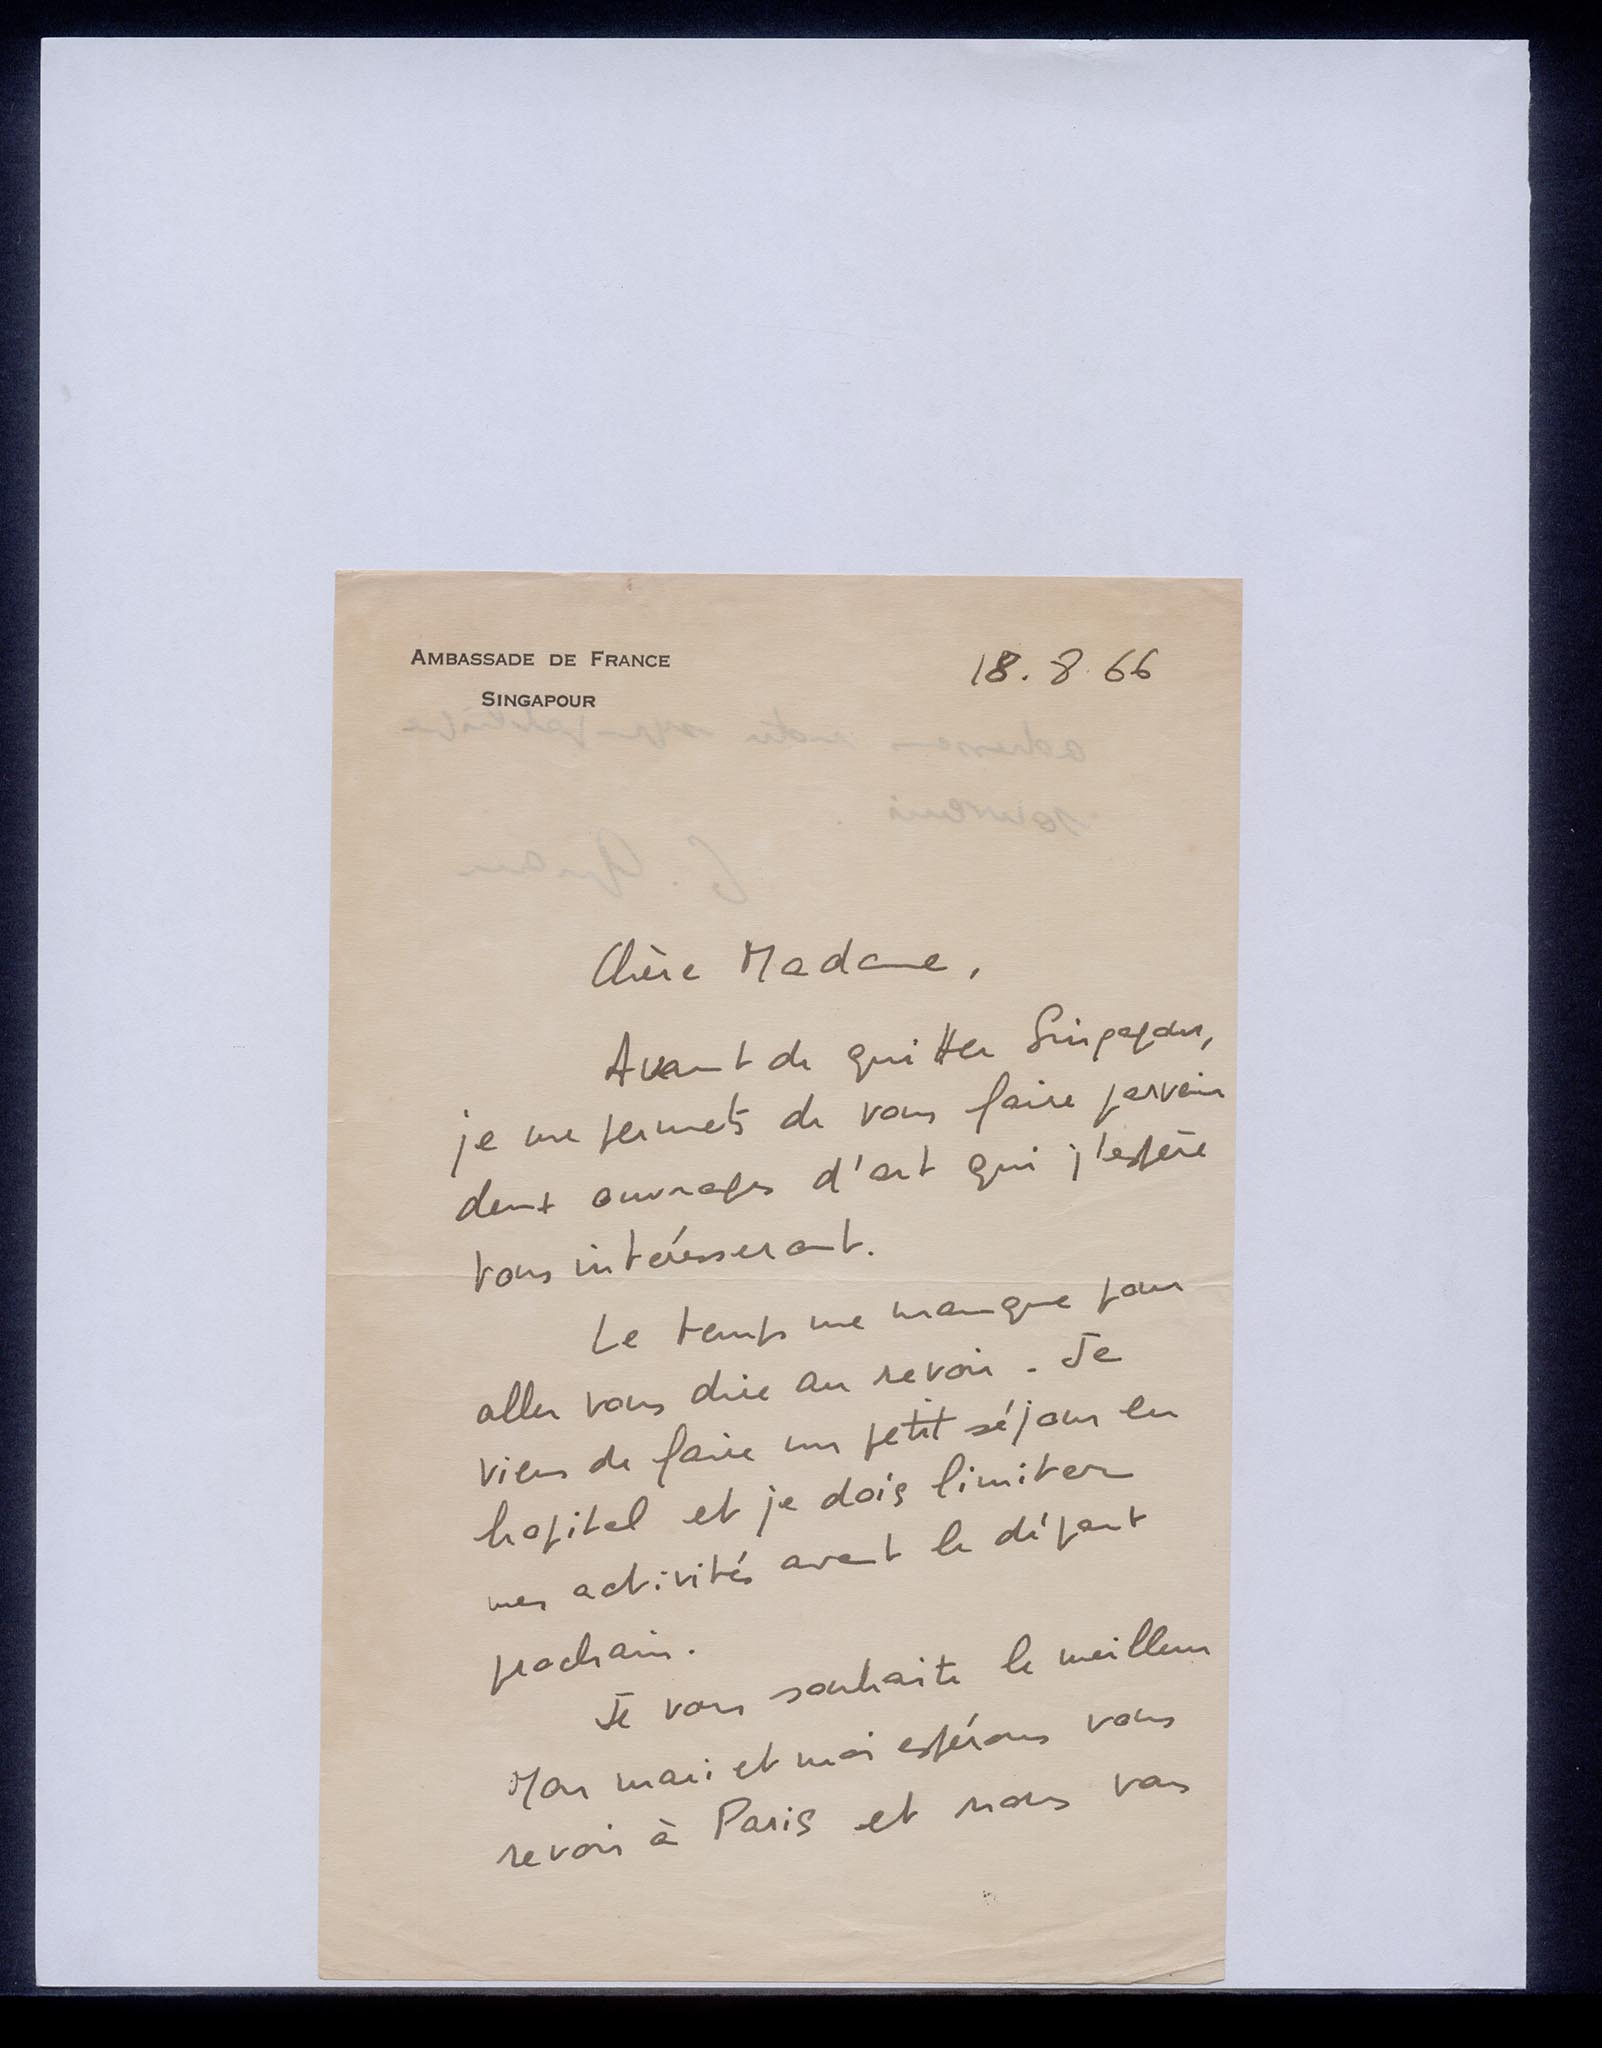 AMBASSADE DE FRANCE
SINGAPOUR
18. 8. 66
Chère Madame,
Avant de quitter Singapour,
je me permets de vous faire parvenir
deux ouvrages d'art qui j'espère
vous intéresseront.
Le temps me manque pour
aller vous dire au revoir. Je
viens de faire un petit séjour en
hopital et je dois limiter
mes activités avant le départ
prochain.
Je vous souhaite le meilleur
Mon mari et moi espérons vous
revoir à Paris et nous vous